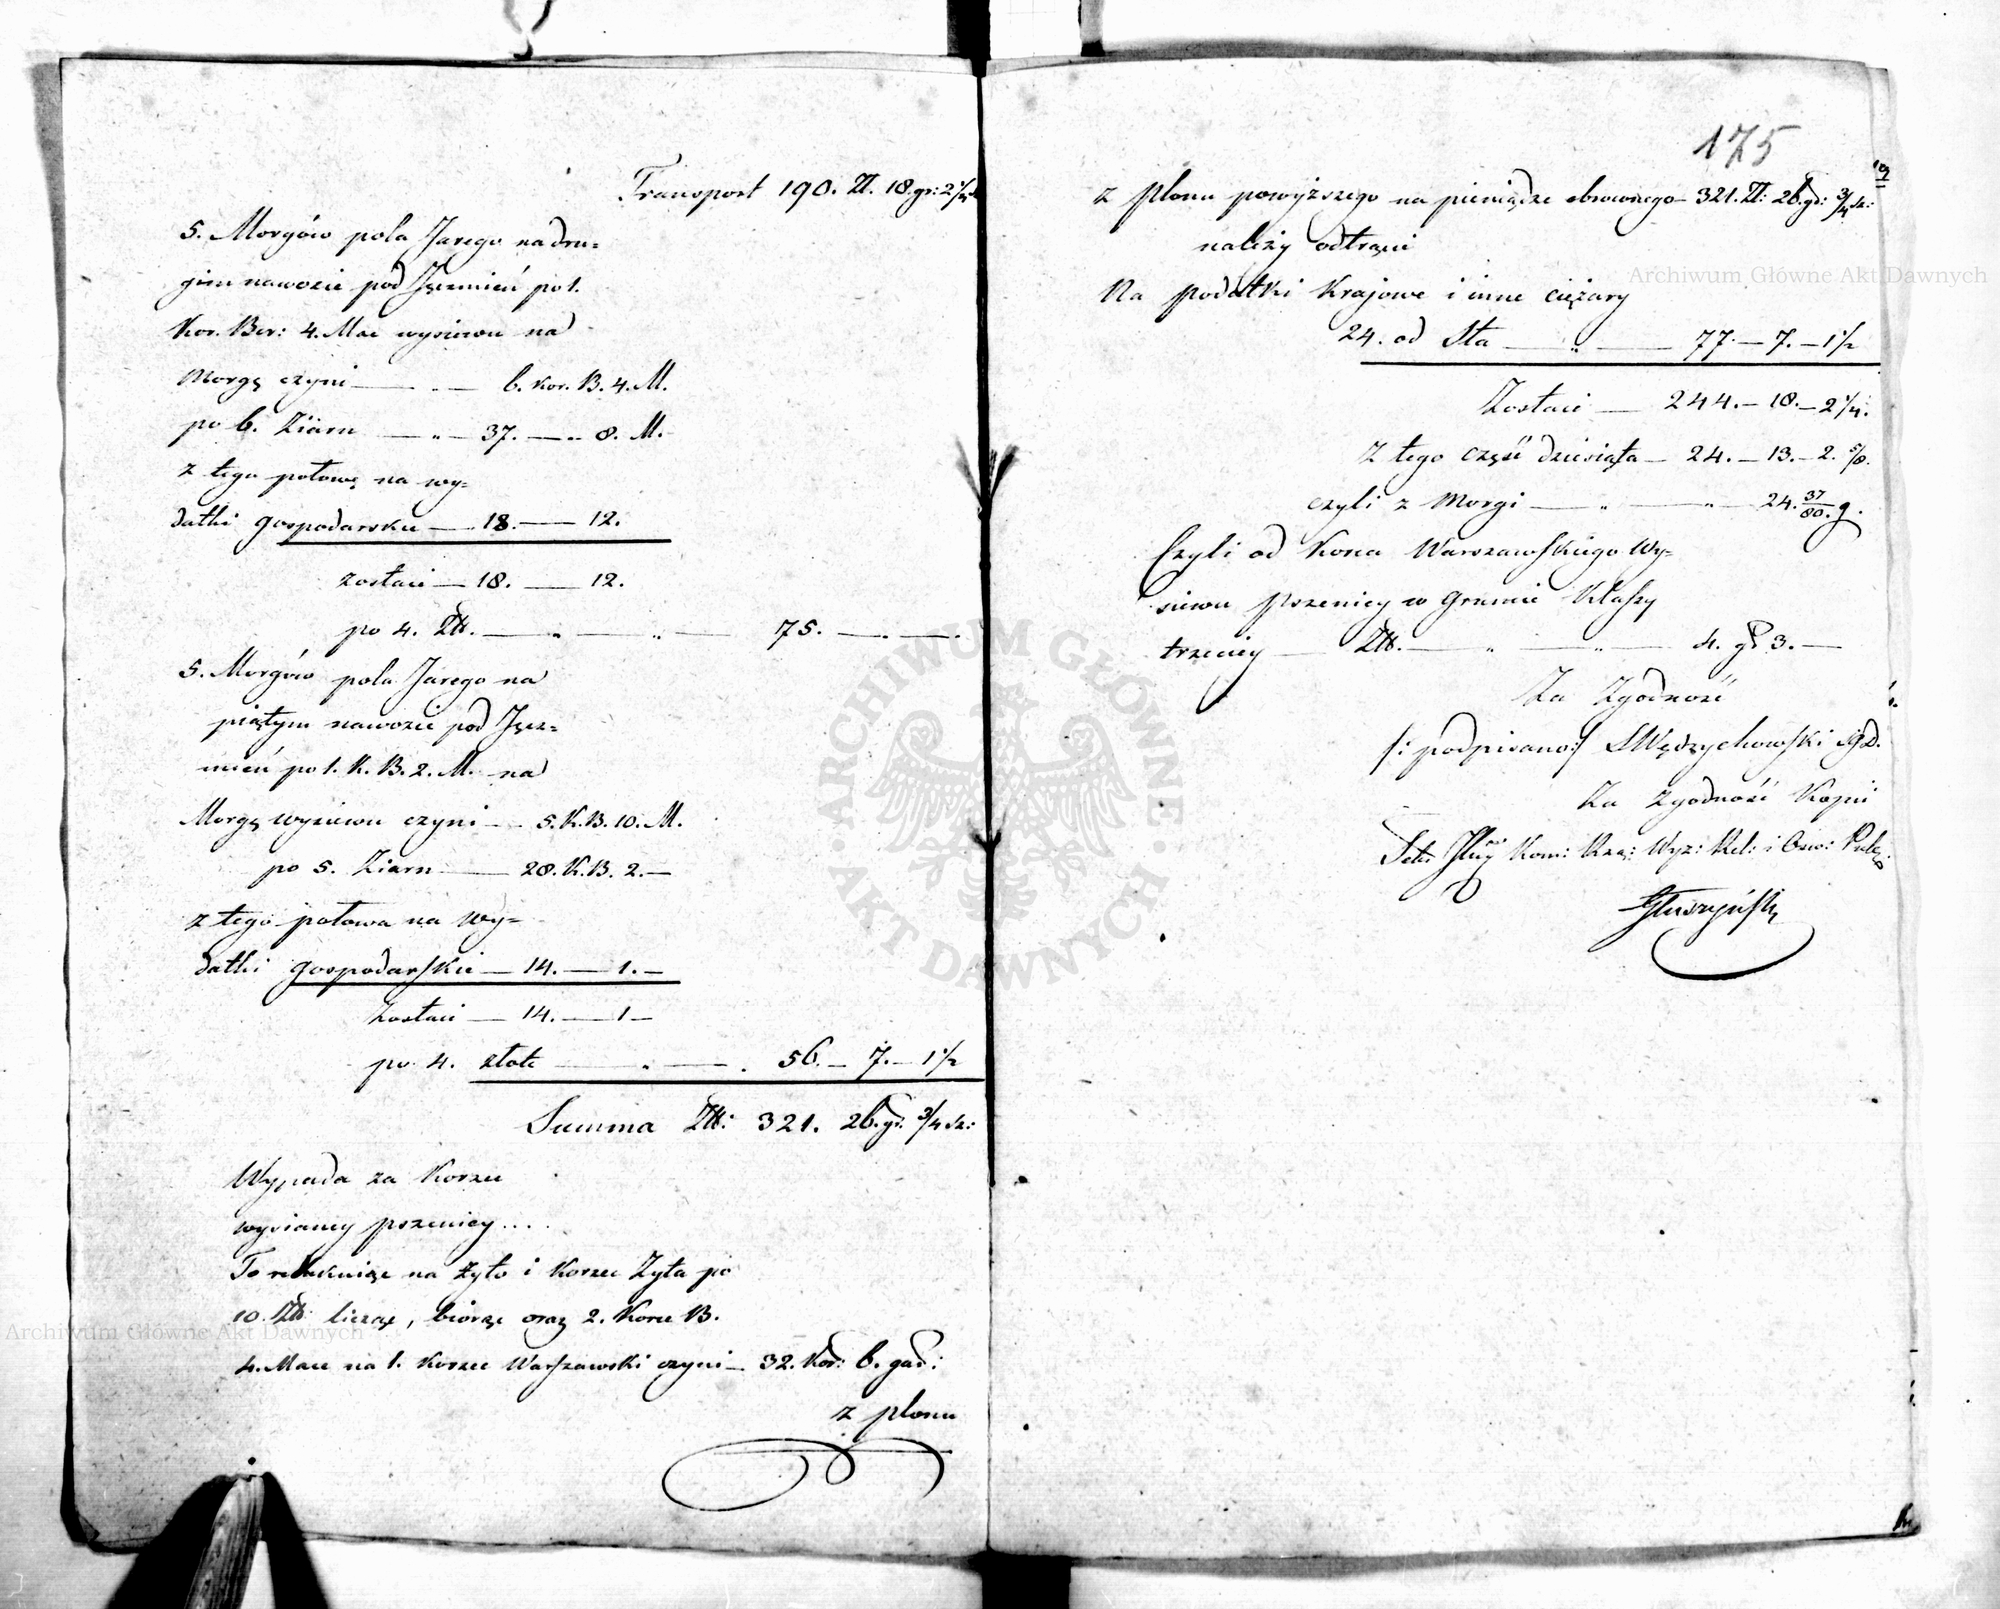 Transport 190. Zł. 18. gr: 2 1/4
5. Morgów pola Jarego na dru=
gim nawozie pod Jęczmień po 1.
Kor. Ber: 4. Mac wysiewu na
Morgę czyni — 6. kor. B. 4. M.
po 6. Ziarn — „ — 37. — „ 8. M.
z tego połowę na wy=
datki gospodarskie — 18. — 12.
zostaie — 18. — 12.
po 4. Złł. — „ — „ — 75. — „ —
5. Morgów pola Jarego na
piątym nawozie pod Jęcz=
mień po 1. K. B. 2. M. na
Morgę wysiewu czyni — 5. K. B. 10. M.
po 5. Ziarn — 28. K. B. 2. —
z tego połowa na wy=
datki gospodarskie — 14. — 1. —
Zostaie — 14. — 1 —
po 4. złote — „ — 56. — 7. — 1 1/2
Summa Złł: 321. 26. gr. 3/4 sz:
Wypada za Korzec
wysianey pszenicy....
To redukuiąc na żyto i korzec Żyta po
10. Złł licząc, biorąc oraz 2. Korce B.
4. Mace na 1. Korzec Warszawski czyni — 32. Kor: 6. gar:
z plonu
175
z plonu powyższego na pieniądze obrownego — 321. Zł: 26. gr: 3/4 sz:
należy odtrąci
Na podatki Krajowe i inne ciężary
24. od Sta — „ — 77. — 7. — 1 1/2
Zostaie — 244. — 18. — 2 1/4.
Z tego część dziesiąta — 24. — 13. — 2. 5/8.
czyli z Morgi — „ — „ — 24. 37/80. g.
Czyli od Korca Warszawskiego Wy=
siewu pszenicy w gruncie Klassy
trzeciey — Złł. — „ — „ — 4. gr 3. —
Za Zgodność
/: podpisano:/ Wędrychowski
Za zgodność Kopii
Kom: Rzą: Wyz: Rel: i Ośw: Publ:
Głuszyński
Archiwum Główne Akt Dawnych
Archiwum Główne Akt Dawnych
ARCHIWUM GŁÓWNE
AKT DAWNYCH